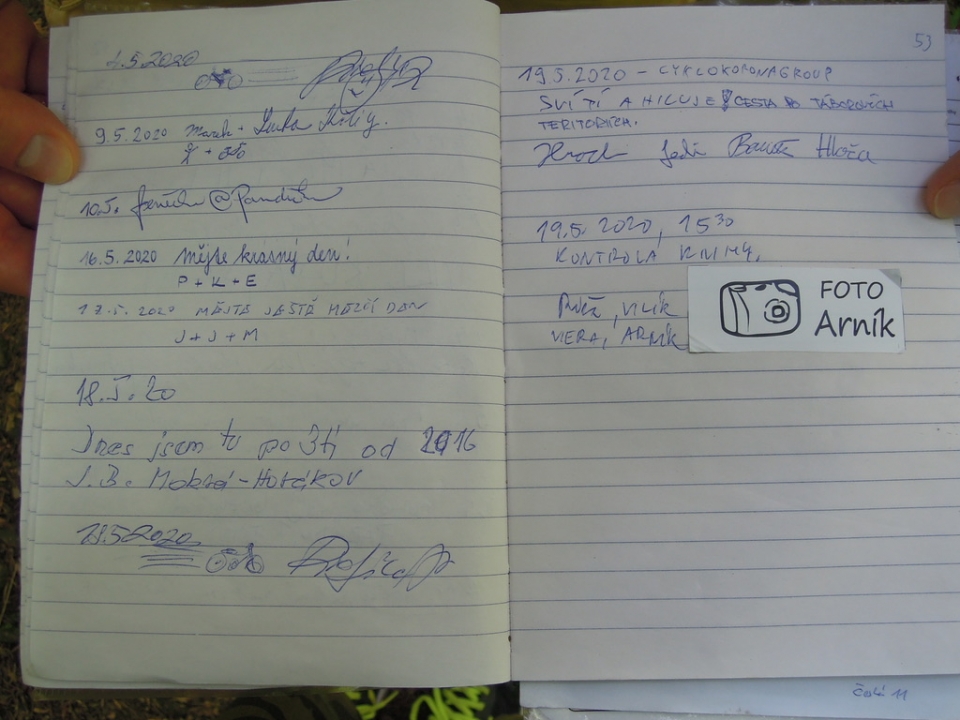 4.5.2020
9.5.2020 Marek + Lenka
10.5. @
16.5.2020 Mějte krásný den!
P + K + E
17.5.2020 MĚJTĚ JEŠTĚ DAN
J + J + M
18.5.20
Dnes jsem tu po 3tí od 2016
J.B. Mokrá-Horákov
18.5.2020
53
19.5.2020 - CYKLOKORONAGROUP
SVÍTÍ A CESTA PO TÁBOROVÝCH
TERITORIÍCH.
Hroch Jedi Hloža
19.5.2020, 15 30
KONTROLA KNIHY.
VILÍK
VĚRA, ARNÍK
FOTO
Arník
Čolá 11